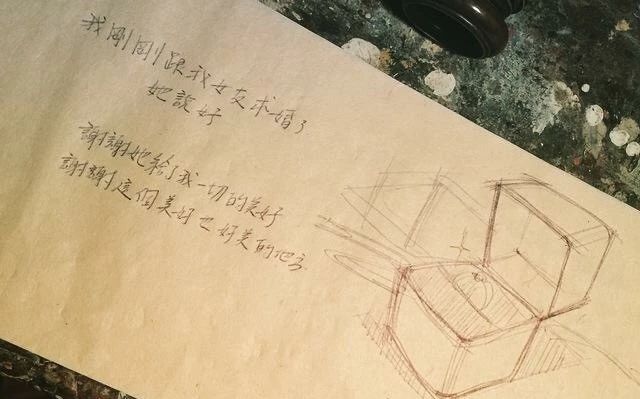 我剛剛跟我女友求婚了
她說好
謝謝她給了我一切的美好
謝謝這個美好也好美的她